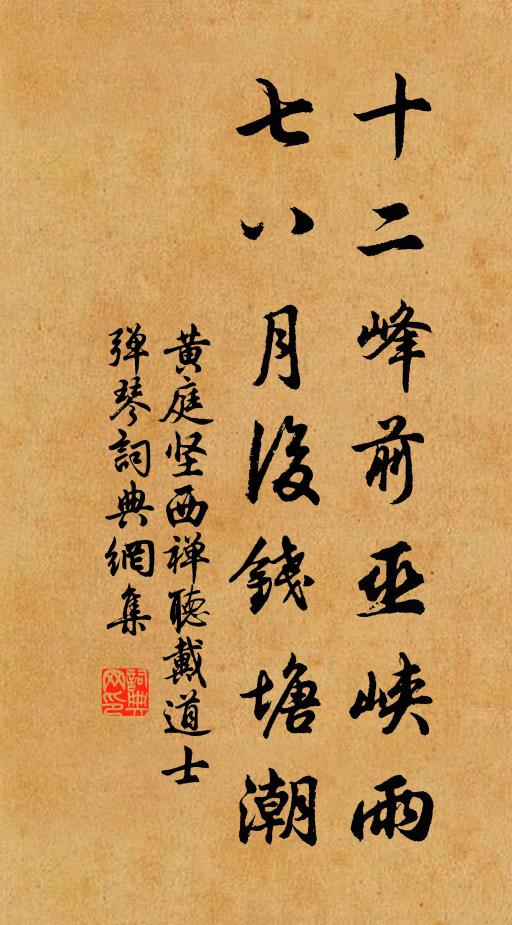 十二峰前巫峡雨
七八月後錢塘潮
黄庭坚西禅聽戴道士
弹琴詞典網集
詞典網印